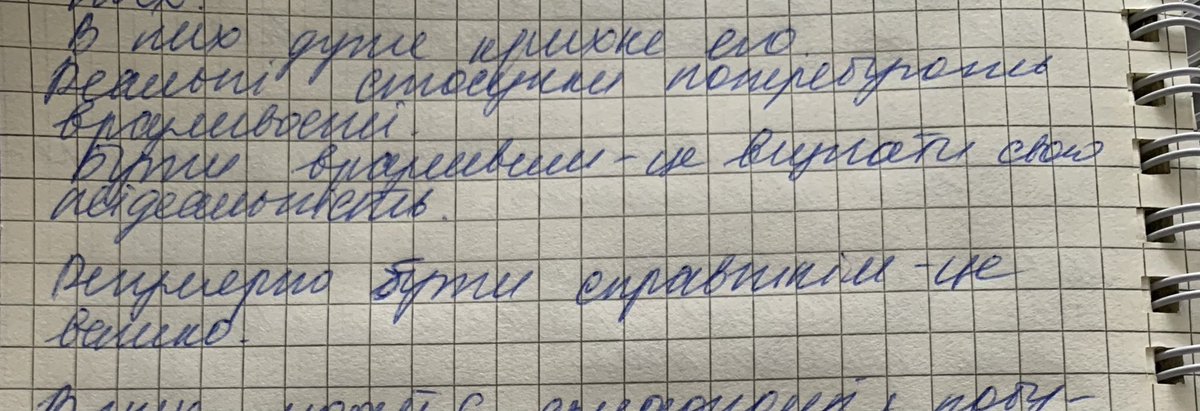 В них дуже крихке его.
Реальні стосунки потребують
вразливості.
Бути вразливим - це визнати свою
неідеальність.
Регулярно бути справжнім - це
важко.